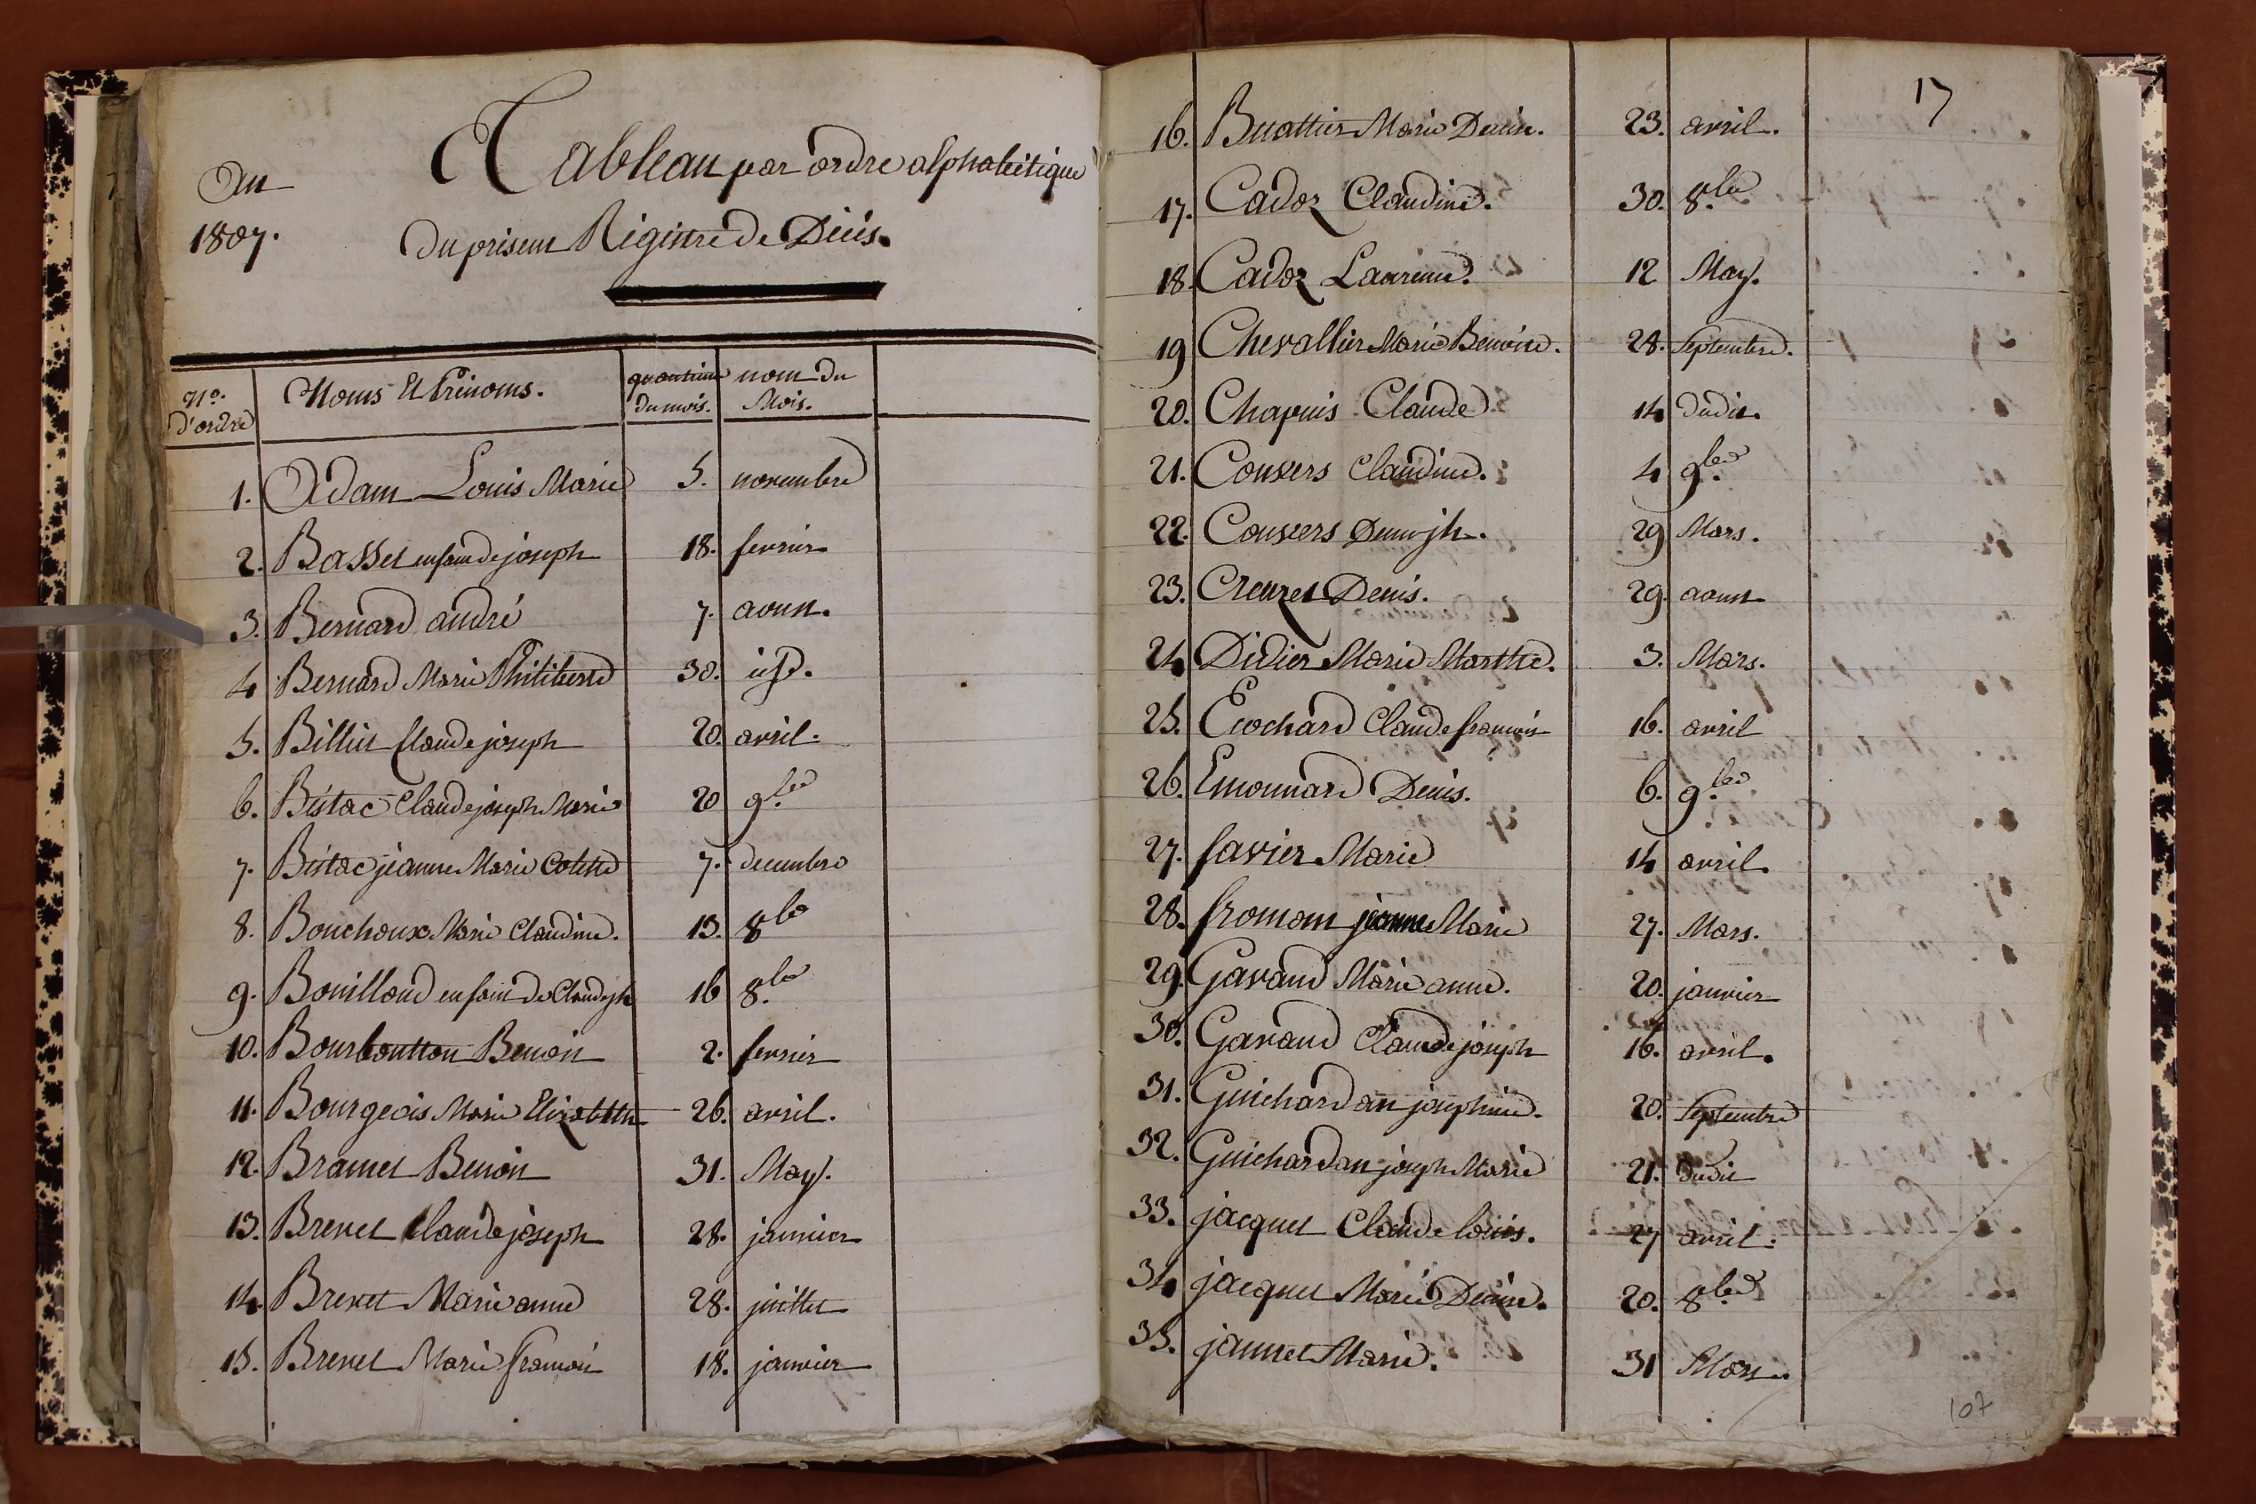 An
1807.
Tableau par ordre alphabétique
du présent Régistre de Décés.
No.
d'ordre
Noms Et Prénoms.
quantieme
du mois.
nom du
Mois.
1. Adam Louis Marie 5. novembre
2. Basset enfant de joseph 18. fevrier
3. Bernard andré 7. aoust.
4 Bernard Marie Philiberte 30. id.
5. Billiet Claude joseph 20. avril.
6. Bistac Claude joseph Marie 20 9.bre
7. Bistac jeanne Marie Colette 7. decembre
8. Bouchoux Marie Claudine. 13. 8bre
9. Bouilloud enfant de Claude jh 16 8.bre
10. Bourboutton Benoit 2. fevrier
11. Bourgeois Marie Elizabeth 26. avril.
12. Bramet Benoit 31. May.
13. Brevet Claude joseph 28. janvier
14. Brevet Marie anne 28. juillet
15. Brevet Marie francoise 18. janvier
17
16. Buattier Marie Denise. 23. avril.
17. Cadoz Claudine. 30. 8.bre
18. Cadoz Laurence. 12 May.
19 Chevallier Marie Benoite. 28. Septembre.
20. Chapuis Claude 14 dudit.
21. Convers Claudine. 4 9.bre
22. Convers Denis jh. 29 Mars.
23. Creuzet Denis. 29. aoust
24 Didier Marie Marthe. 3. Mars.
25. Ecochard Claude francois 16. avril
26. Emonnard Denis. 6. 9.bre
27. favier Marie 14 avril.
28. fromont jeanne Marie 27. Mars.
29. Gavand Marie anne. 20. janvier
30. Gavand Claude joseph 16. avril.
31. Guichardan josephine. 20. Septembre
32. Guichardan joseph Marie 21. dudit
33. jacquet Claude louis. 27 avril.
34 jacquet Marie Denise. 20. 8.bre
35. jannet Marie. 31 Mars.
107